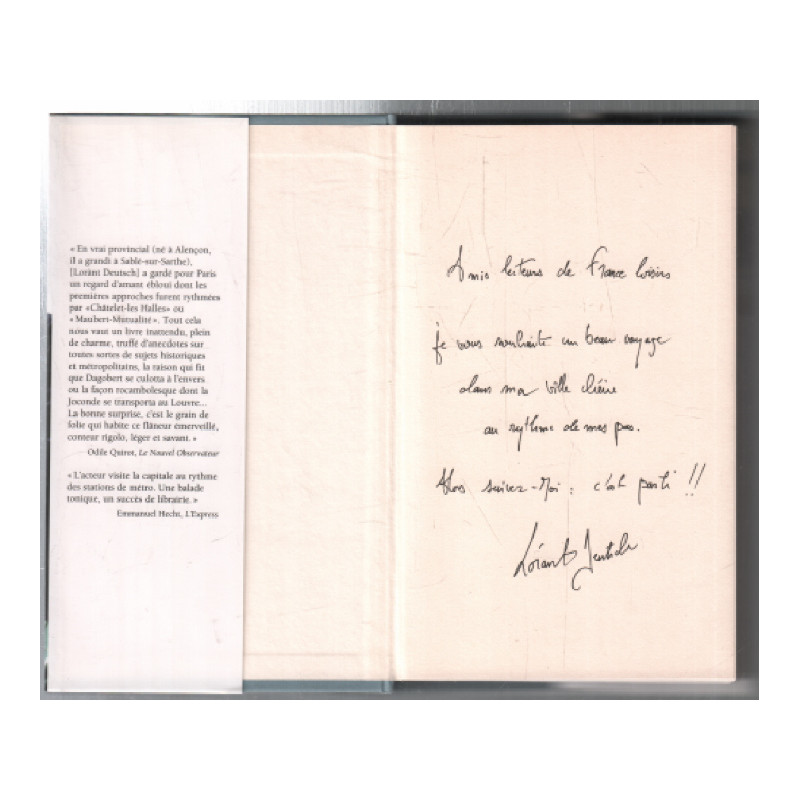 « En vrai provincial (né à Alençon,
il a grandi à Sablé-sur-Sarthe),
[Lorànt Deutsch] a gardé pour Paris
un regard d'amant ébloui dont les
premières approches furent rythmées
par «Châtelet-les Halles» ou
« Maubert-Mutualité». Tout cela
nous vaut un livre inattendu, plein
de charme, truffé d'anecdotes sur
toutes sortes de sujets historiques
et métropolitains, la raison qui fit
que Dagobert se culotta à l'envers
ou la façon rocambolesque dont la
Joconde se transporta au Louvre...
La bonne surprise, c'est le grain de
folie qui habite ce flâneur émerveillé,
conteur rigolo, léger et savant. »
Odile Quirot, Le Nouvel Observateur
« L'acteur visite la capitale au rythme
des stations de métro. Une balade
tonique, un succès de librairie. »
Emmanuel Hecht, L'Express
Amis lecteurs de France loisirs
je vous souhaite un beau voyage
dans ma ville chérie
au rythme de mes pas.
Alors suivez-moi : c'est parti !!
Lorànt Deutsch